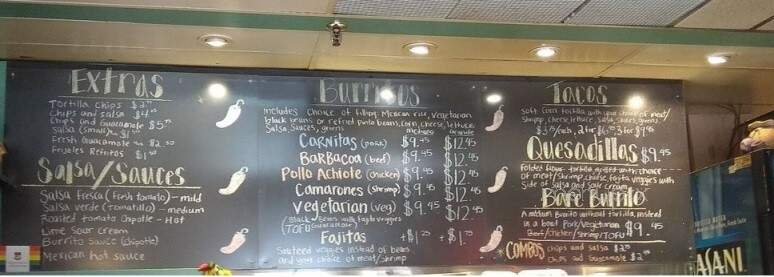 Extras
Tortilla chips
Chips and salsa
Chips and Guacamole $5
Salsa (small)
Fresh Guacamole
Frijoles Refritos
Salsa/Sauces
Salsa fresca (fresh tomato) - mild
Salsa verde (tomatillo) - medium
Roasted tomato Chipotle - Hot
Lime sour cream
Burrito sauce (chipotle)
Mexican hot sauce
Burritos
Includes choice of filling, Mexican rice, vegetarian
black beans or refried pinto beans, corn, cheese, lettuce
Salsa, Sauces, greens
mediano grande
Carnitas (pork) $9.45 $12.45
Barbacoa (beef) $9.45 $12.45
Pollo Achiote (chicken) $9.45 $12.45
Camarones (shrimp) $9.45 $12.45
Vegetarian (veg) $9.45 $12.45
Black Beans with fajita veggies
(TOFU Guacamole)
Fajitas
Sauteed veggies instead of beans
and your choice of meat/shrimp
Tacos
soft corn tortilla with your choice of meat/
Shrimp, cheese, lettuce, salsa, sauces, greens
Quesadillas $9.45
Folded flour tortilla grilled with choice
of meat/shrimp, cheese, fajita veggies with
side of salsa and sour cream
Bare Burrito
A medium Burrito without tortilla, instead
in a bowl Pork/Vegetarian
Beef/Chicken/Shrimp/TOFU $9.45
COMBOS chips and salsa
Chips and Guacamole
ASANI